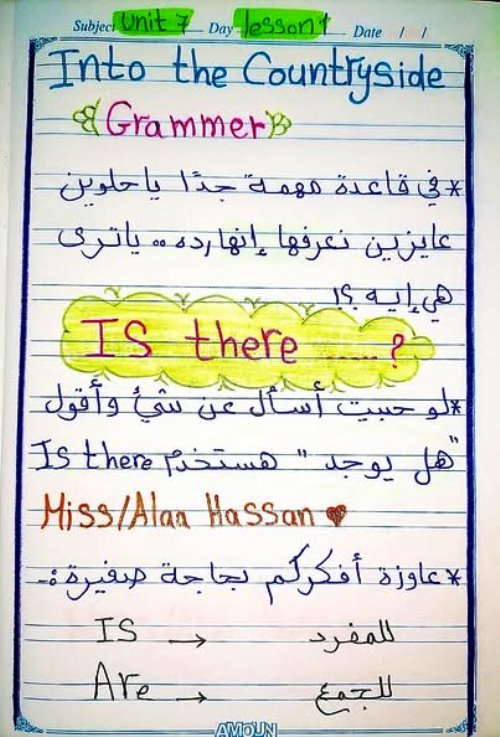 Subject Unit 7 Day lesson 1 Date / /
Into the Countryside
Grammer
* في قاعدة مهمة جدًا يا حلوين
عايزين نعرفها إنهارده .. ياترى
هي إيه ؟!
IS there ..... ?
* لو حبيت أسأل عن شئ وأقول
"هل يوجد" هستخدم Is there
Miss/Alaa Hassan ♥
* عاوزة أفكركم بحاجة صغيرة :-
IS → للمفرد
Are → للجمع
AMOUN